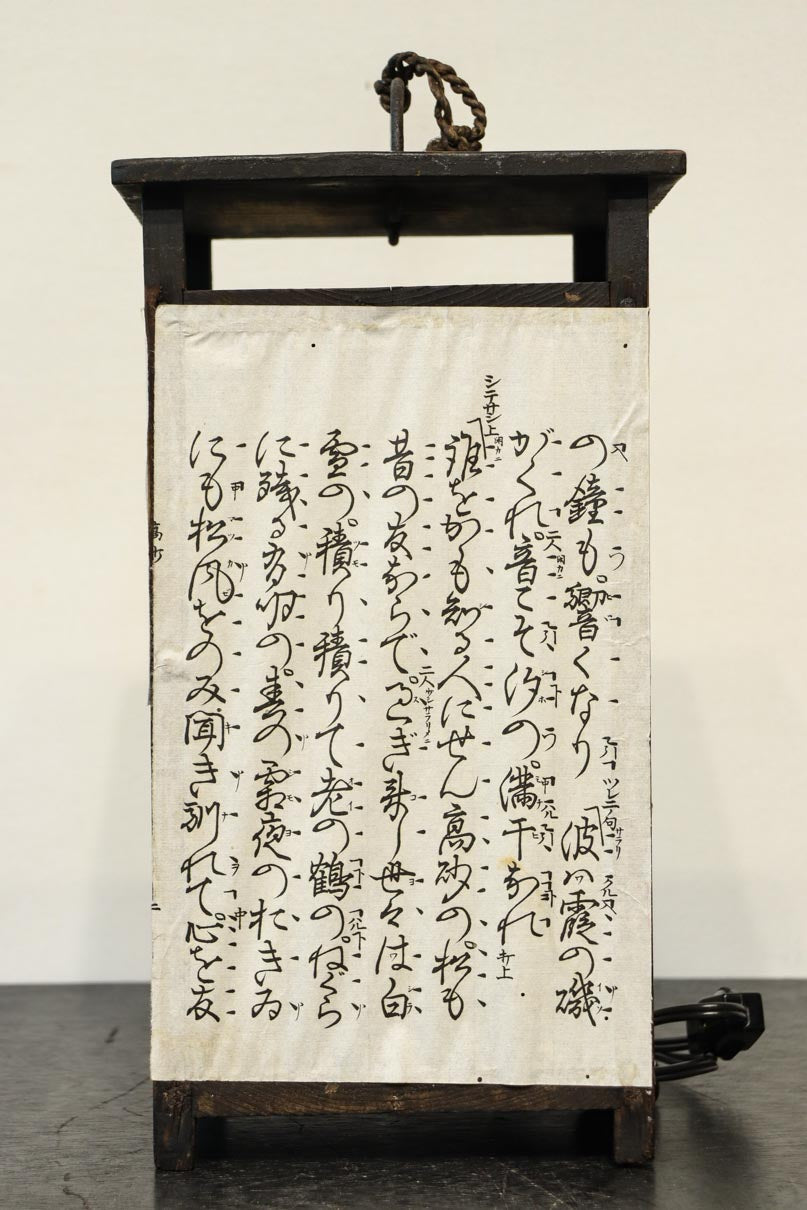 の鐘も。響くなり 波は霞の磯
がくれ。音こそ汐の。満干なれ
誰をかも知る人にせん高砂の。松も
昔の友ならで。過ぎ来し世々は白
雪の。積り積りて老の鶴の。ねぐら
に残る有明の。春の霜夜のおきゐ
にも松風をのみ聞き馴れて。心を友
シテサシ上
ツレ二句
サラリ
二人
高砂
二